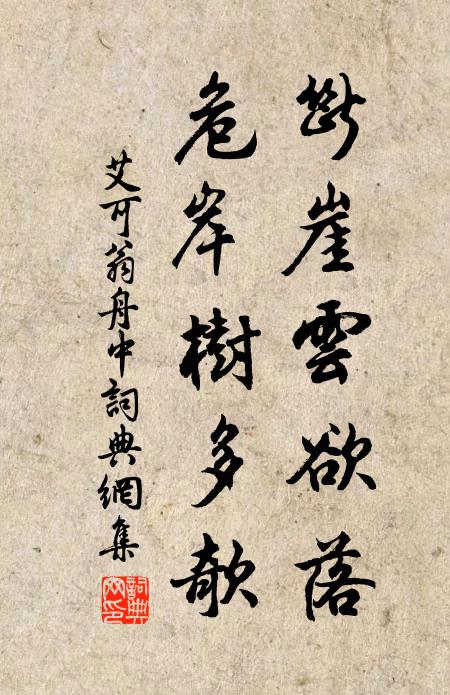 斷崖雲欲落
危岸樹多欹
艾可翁舟中詞典網集
詞典網印